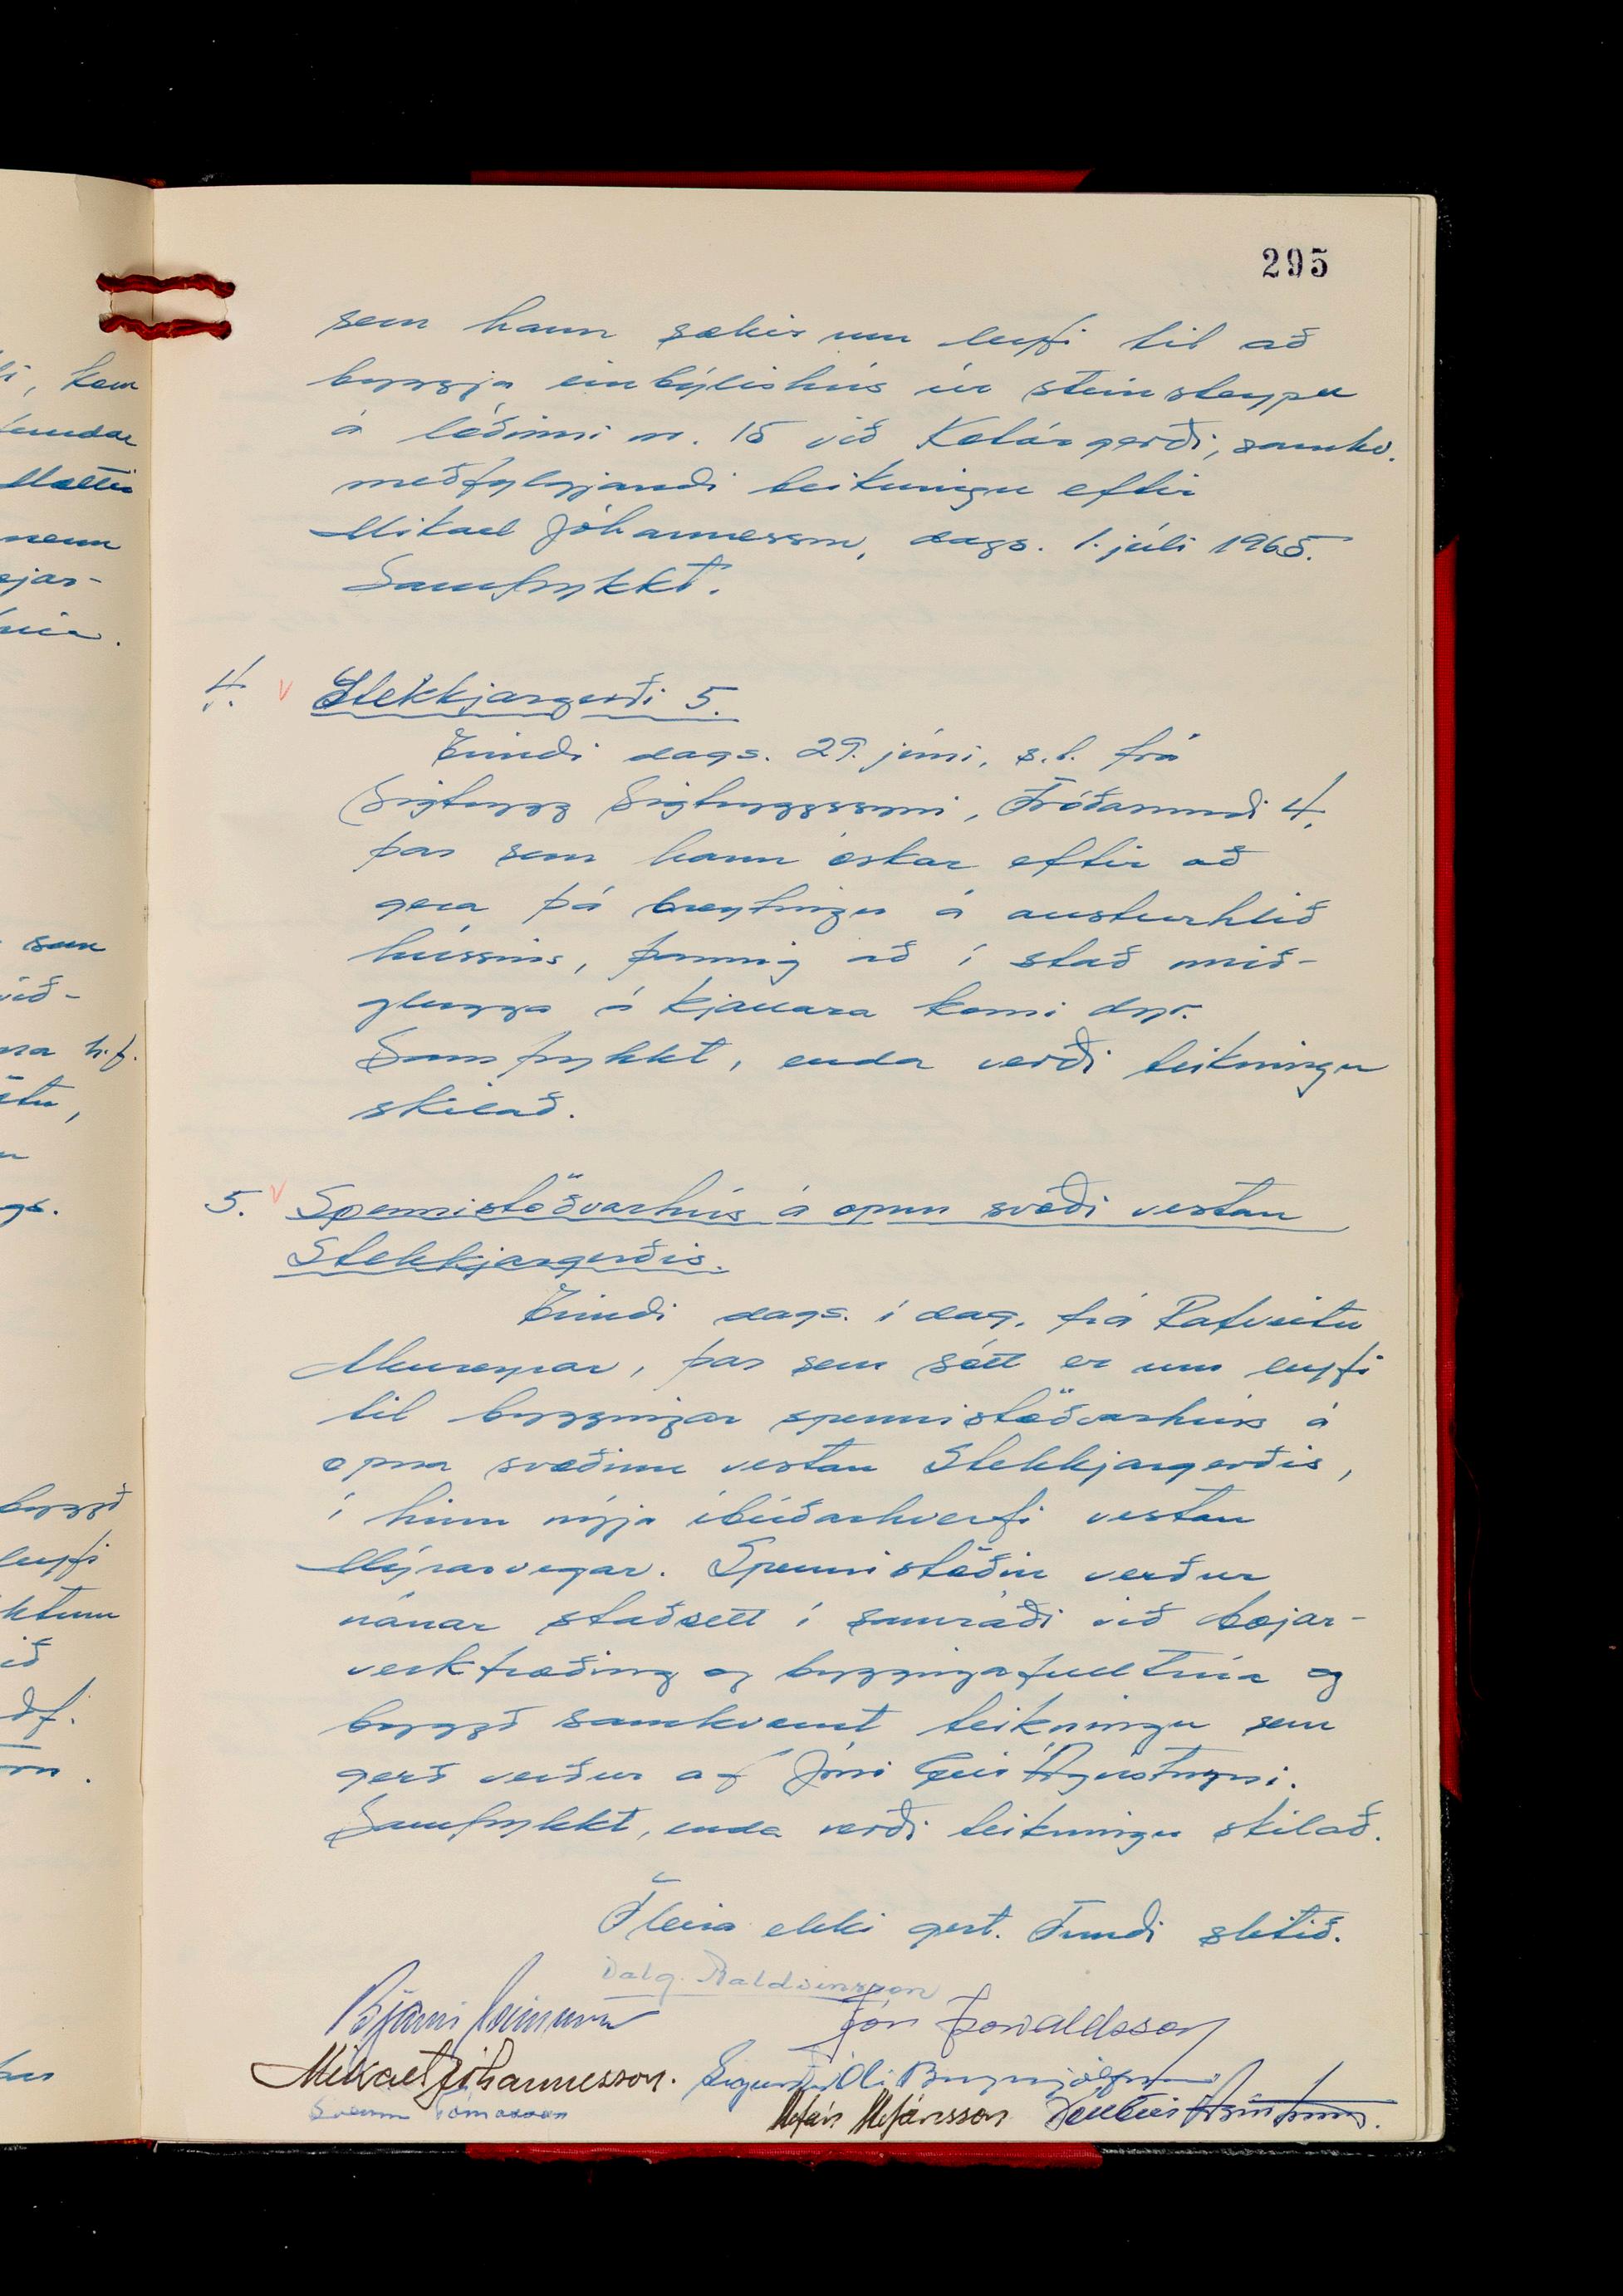 295
sem hann sækir um leyfi til að
byggja einbýlishús úr steinsteypu
á lóðinni nr. 15 við Kotárgerði, samkv.
meðfylgjandi teikningu eftir
Mikael Jóhannesson, dags. 1. júlí 1965.
Samþykkt.
4. v Stekkjargerði 5.
Erindi dags. 29. júní, s.l. frá
Sigtrygg Sigtryggssyni, Fróðasundi 4,
þar sem hann óskar eftir að
gera þá breytingu á austurhlið
hússins, þannig að í stað mið-
glugga á kjallara komi dyr.
Samþykkt, enda verði teikningu
skilað.
5. v Spennistöðvarhús á opnu svæði vestan
Stekkjargerðis.
Erindi dags. í dag, frá Rafveitu
Akureyrar, þar sem sótt er um leyfi
til byggingar spennistöðvarhúss á
opna svæðinu vestan Stekkjargerðis,
í hinu nýja íbúðarhverfi vestan
Mýrarvegar. Spennistöðin verður
nánar staðsett í samráði við bæjar-
verkfræðing og byggingafulltrúa og
byggð samkvæmt teikningu sem
gerð verður af Jóni Geir Ágústssyni.
Samþykkt, enda verði teikningu skilað.
Fleira ekki gert. Fundi slitið.
Dalg. Baldvinsson
Bjarni Jón Þorvaldsson
Mikael Jóhannesson. Sigurður Óli Brynjólfsson
Tómasson Stefán Stefánsson Jón Geir Ágústsson.